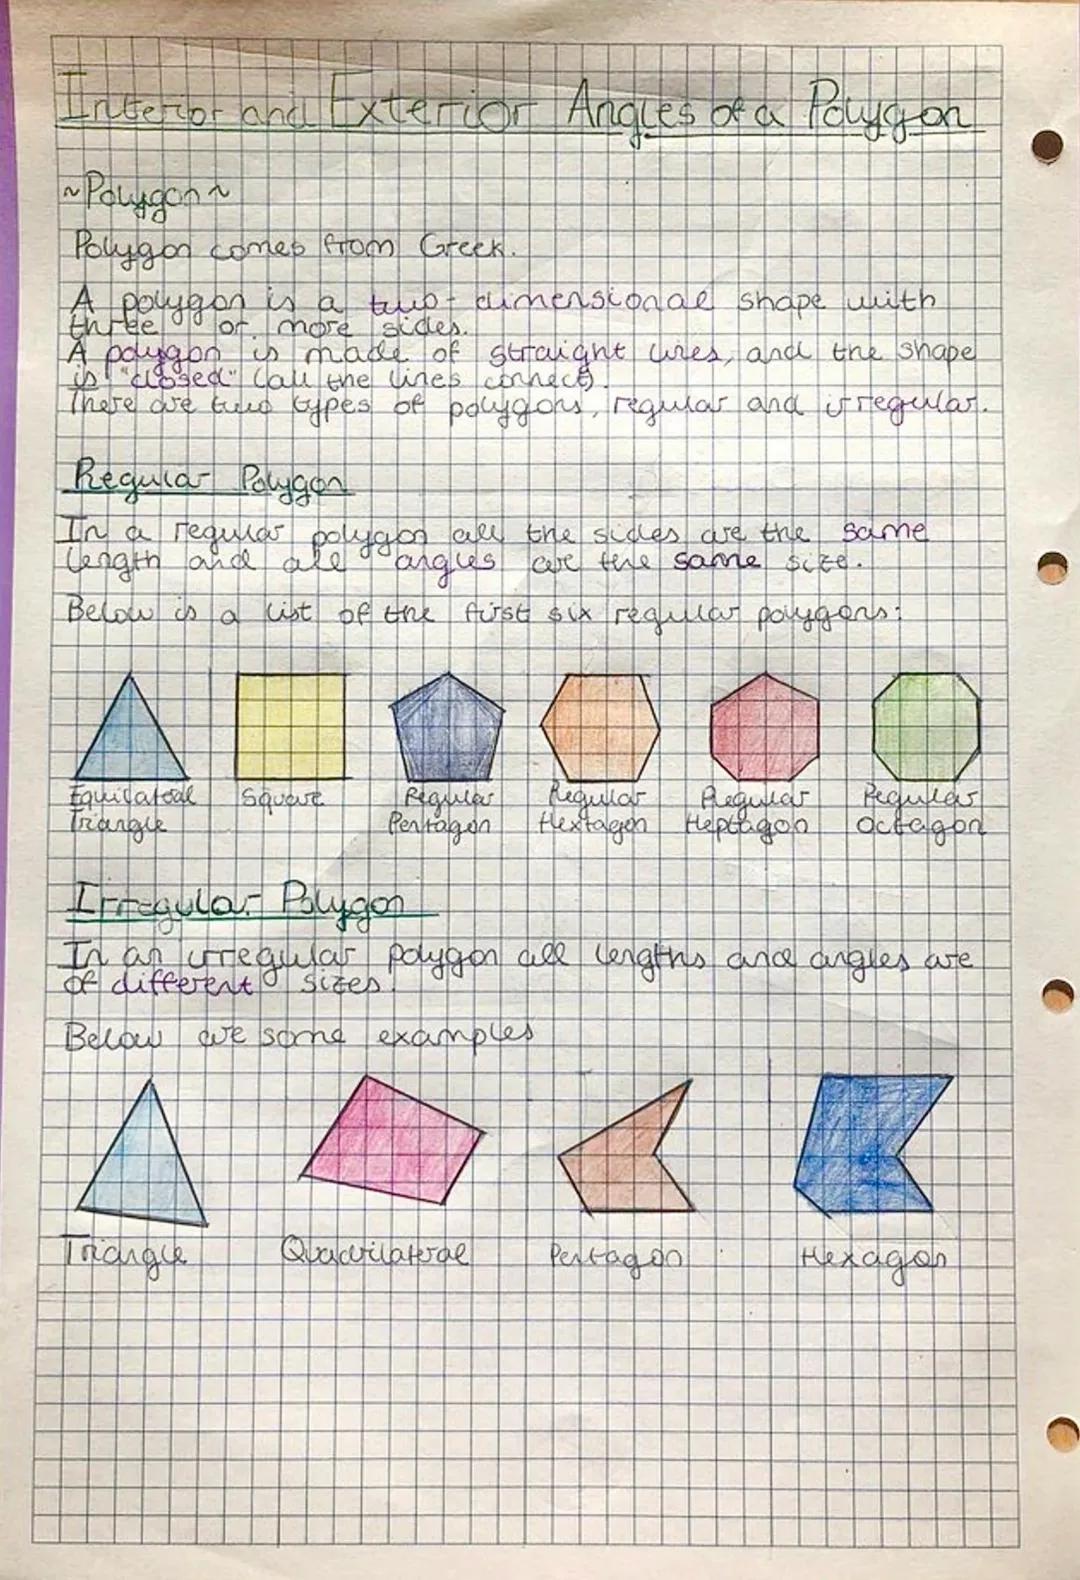 Interior and Exterior Angles of a Polygon
~Polygon~
Polygon comes from Greek.
A polygon is a two-dimensional shape with
three or more sides.
A polygon is made of straight lines, and the shape
is "closed" (all the lines connect).
There are two types of polygons, regular and irregular.
Regular Polygon
In a regular polygon all the sides are the same
length and all angles are the same size.
Below is a list of the first six regular polygons:
Equilateral Triangle
Square
Regular Pentagon
Regular Hextagon
Regular Heptagon
Regular Octagon
Irregular Polygon
In an irregular polygon all lengths and angles are
of different sizes.
Below are some examples
Triangle
Quadrilateral
Pentagon
Hexagon